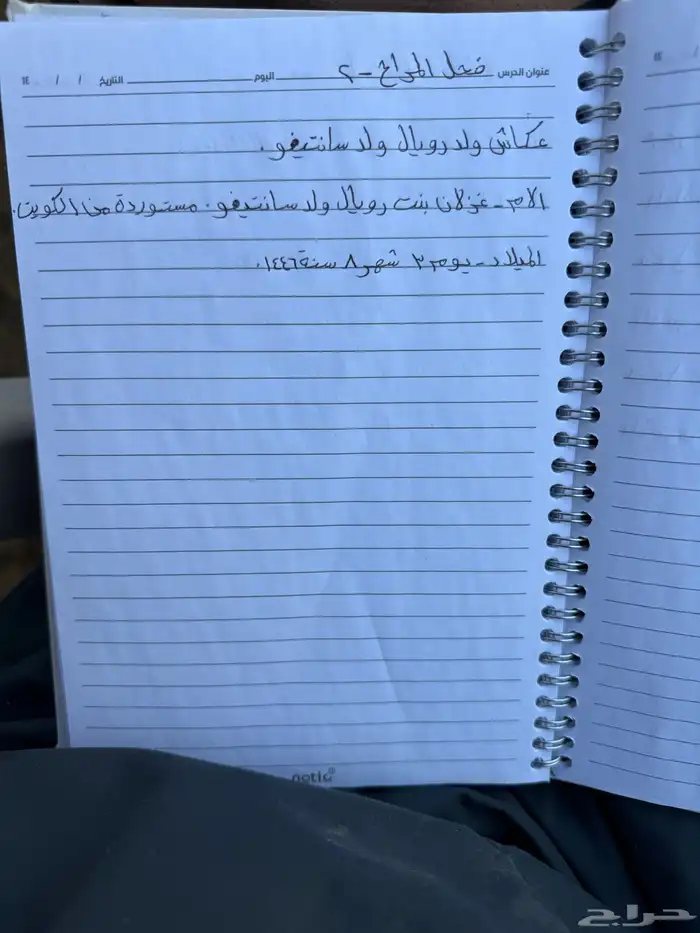 عنوان الدرس فحل المراح - ٢ اليوم التاريخ / / ١٤
عكاش ولد رويال ولد سانتيفو.
الام - غزلان بنت رويال ولد سانتيفو. مستوردة من الكويت.
الميلاد - يوم ٣ شهر ٨ سنة ١٤٤٦.
notiq
حراج